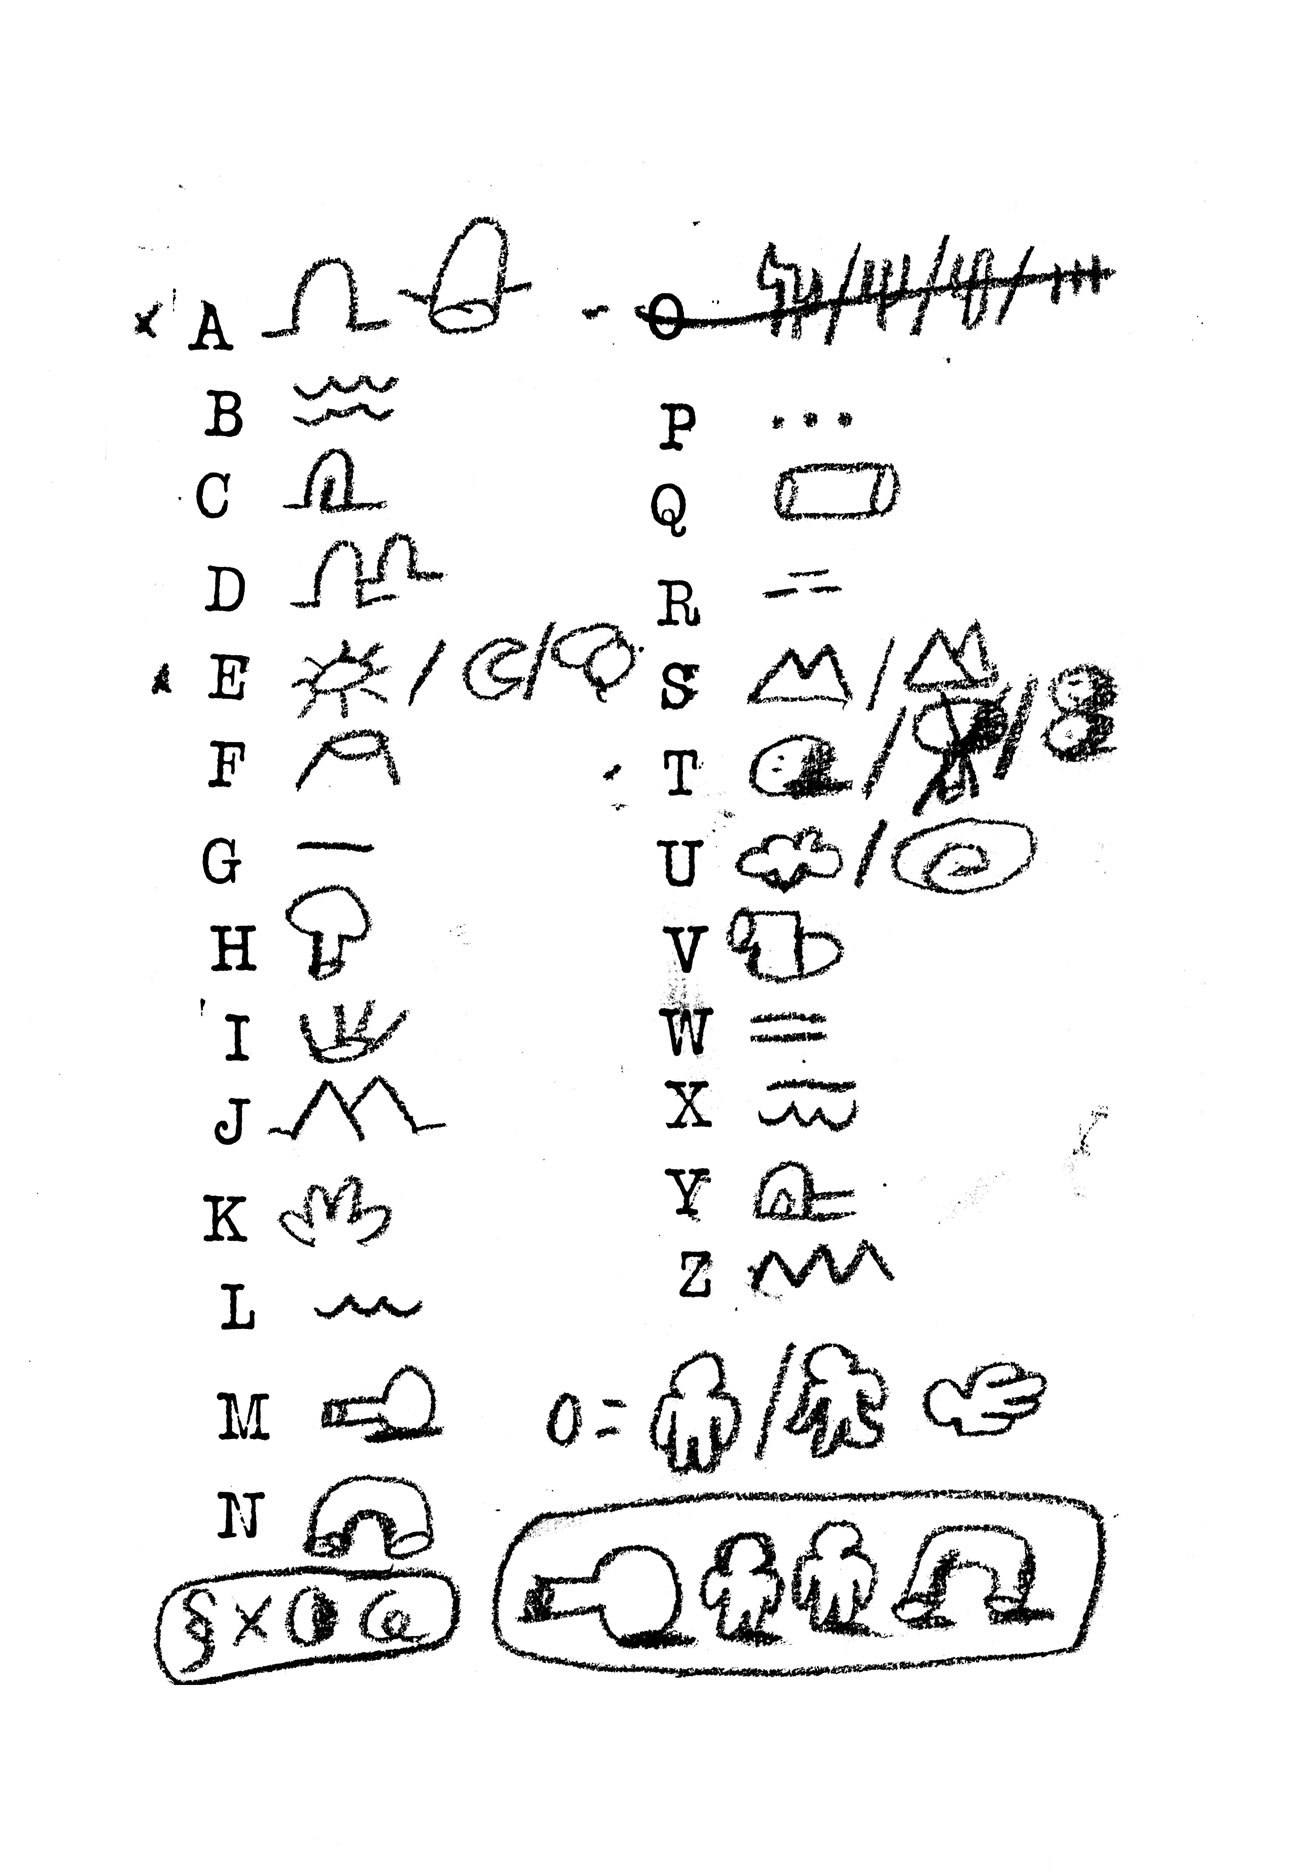 A
B
C
D
E
F
G
H
I
J
K
L
M
N
O
P
Q
R
S
T
U
V
W
X
Y
Z
O =